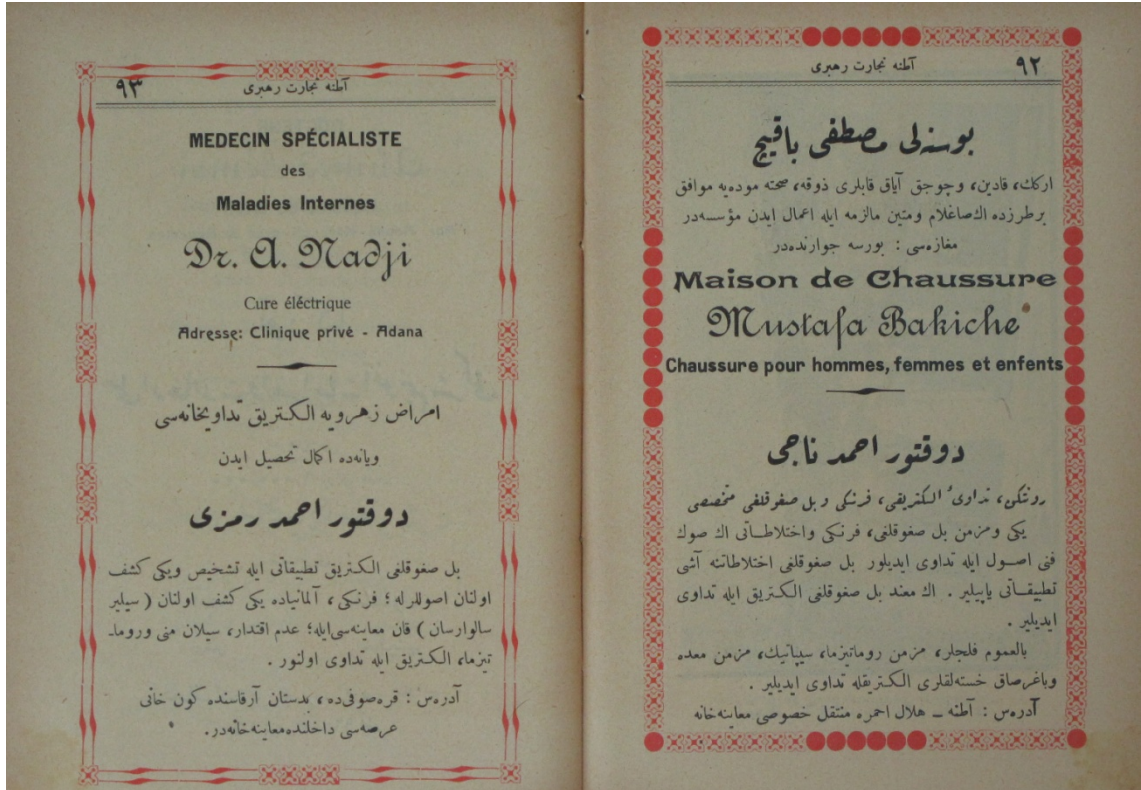 آطنه تجارت رهبری ٩٢
بوسنه‌لی مصطفی باقیچ
ارکك، قادین، وچوجق آیاق قابلری ذوقه، صحته موده‌یه موافق
برطرزده اك صاغلام ومتین مالزمه ایله اعمال ایدن مؤسسه‌در
مغازه‌سی : بورسه جوارنده‌در
Maison de Chaussure
Mustafa Bakiche
Chaussure pour hommes, femmes et enfents
دوقتور احمد ناجی
رونتكن، تداوئ الكتریقی، فرنكی وبل صغوقلغی متخصصی
یكی ومزمن بل صغوقلغی، فرنكی واختلاطـاتی اك صوك
فنی اصـول ایله تداوی ایدیلور بل صغوقلغی اختلاطاتنه آشی
تطبیقـاتی یاپیلیر . اك معند بل صغوقلغی الكتریق ایله تداوی
ایدیلیر .
بالعموم فلجلر، مزمن روماتیزما، سیپاتیك، مزمن معده
وباغرصاق خسته‌لقلری الكتریقله تداوی ایدیلیر .
آدره‌س : آطنه ـ هلال احمره متنقل خصوصی معاینه‌خانه
آطنه تجارت رهبری ٩٣
MEDECIN SPÉCIALISTE
des
Maladies Internes
Dr. A. Nadji
Cure éléctrique
Adresse: Clinique privé - Adana
امراض زهرویه الكتریق تداویخانه‌سی
ویانه‌ده اكمال تحصیل ایدن
دوقتور احمد رمزی
بل صغوقلغی الكتریق تطبیقاتی ایله تشخیص ویكی كشف
اولنان اصوللرله ؛ فرنكی ، آلمانیاده یكی كشف اولنان ( سیلبر
سالوارسان ) قان معاینه‌سی‌ایله؛ عدم اقتدار، سیلان منی وروما۔
تیزما، الكتریق ایله تداوی اولنور .
آدره‌س : قره‌صوفی‌ده، بدستان آرقاسنده كون خانی
عرصه‌سی داخلنده معاینه‌خانه‌در.